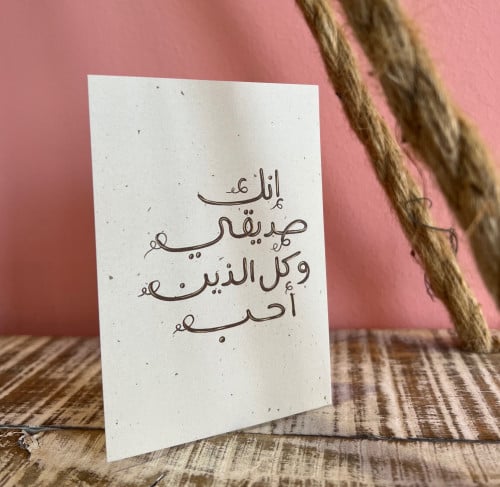 إنك
صديقي
وكل الذين
أحب